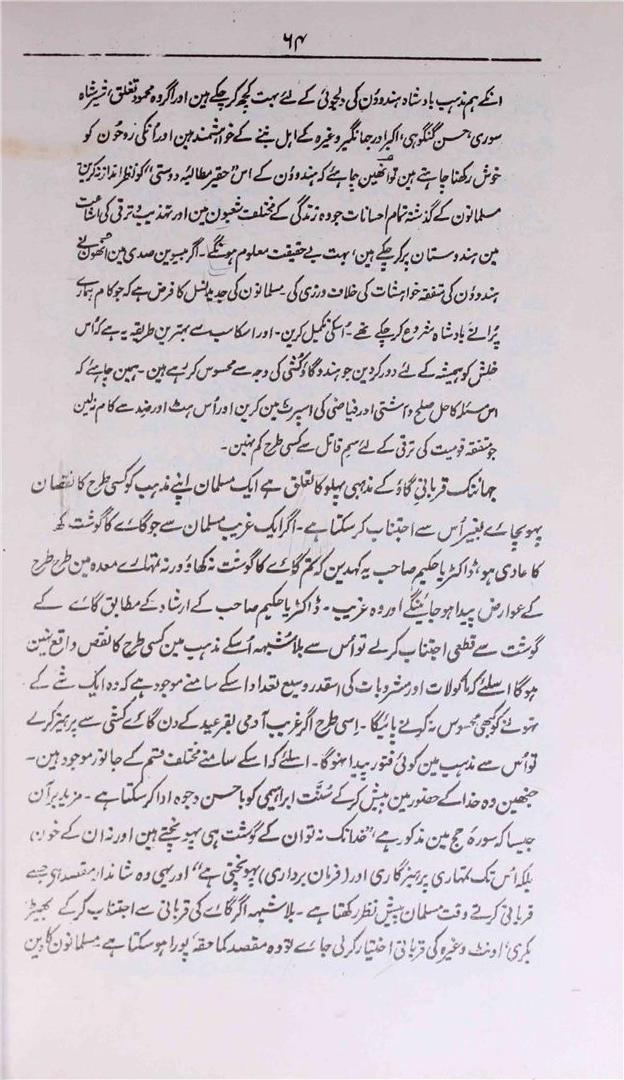 ۶۴
انکے ہم مذہب بادشاہ ہندوؤن کی دلجوئی کے لئے بہت کچھ کر چکے ہین اور اگر وہ محمود تغلق، شیر شاہ
سوری، حسن گنگوہی، اکبر اور جہانگیر وغیرہ کے اہل بننے کے خواہشمند ہین اور اُنکی روحون کو
خوش رکھنا چاہتے ہین تو اُنھین چاہئے کہ ہندوؤن کے اس "حقیر مطالبۂ دوستی" کو نظر انداز نہ کرین
مسلمانون کے گذشتہ تمام احسانات جو وہ زندگی کے مختلف شعبون مین اور تہذیب و ترقی کی اشاعت
مین ہندوستان پر کر چکے ہین، بہت بے حقیقت معلوم ہونگے۔ اگر بیسوین صدی مین اُنھون نے
ہندوؤن کی متفقہ خواہشات کی خلاف ورزی کی۔ مسلمانون کی جدید نسل کا فرض ہے کہ جو کام ہمارے
پُرانے بادشاہ شروع کر چکے تھے۔ اُسکی تکمیل کرین۔ اور اسکا سب سے بہترین طریقہ یہ ہے کہ اُس
خلش کو ہمیشہ کے لئے دور کر دین جو ہندو گاؤکشی کی وجہ سے محسوس کر رہے ہین۔ ہمین چاہئے کہ
اس مسئلہ کا حل صلح و آشتی اور فیاضی کی اسپرٹ مین کرین اور اُس ہٹ اور ضد سے کام نہ لین
جو متفقہ قومیت کی ترقی کے لئے سم قاتل سے کسی طرح کم نہین۔
جہانتک قربانیٔ گاؤ کے مذہبی پہلو کا تعلق ہے ایک مسلمان اپنے مذہب کو کسی طرح کا نقصان
پہونچائے بغیر اُس سے اجتناب کر سکتا ہے۔ اگر ایک غریب مسلمان سے جو گائے کا گوشت کھانے
کا عادی ہو، ڈاکٹر یا حکیم صاحب یہ کہدین کہ تم گائے کا گوشت نہ کھاؤ ورنہ تمہارے معدہ مین طرح طرح
کے عوارض پیدا ہو جائینگے اور وہ غریب۔ ڈاکٹر یا حکیم صاحب کے ارشاد کے مطابق گائے کے
گوشت سے قطعی اجتناب کر لے تو اُس سے بلا شبہہ اُسکے مذہب مین کسی طرح کا نقص واقع نہین
ہوگا اسلئے کہ ماکولات اور مشروبات کی اسقدر وسیع تعداد اسکے سامنے موجود ہے کہ وہ ایک شے کے
نہونے کو کبھی محسوس نہ کرنے پائیگا۔ اِسی طرح اگر غریب آدمی بقرعید کے دن گائے کشی سے پرہیز کرے
تو اُس سے مذہب مین کوئی فتور پیدا نہوگا۔ اسلئے کہ اسکے سامنے مختلف قسم کے جانور موجود ہین۔
جنھین وہ خدا کے حضور مین پیش کر کے سُنّت ابراہیمی کو باحسن وجوہ ادا کر سکتا ہے۔ مزید برآن
جیسا کہ سورۂ حج مین مذکور ہے، "خدا تک نہ تو ان کے گوشت ہی پہونچتے ہین اور نہ ان کے خون
بلکہ اس تک تمہاری پرہیزگاری اور (فرمان برداری) پہونچتی ہے" اور یہی وہ شاندار مقصد ہے جسے
قربانی کرتے وقت مسلمان پیش نظر رکھتا ہے۔ بلا شبہہ اگر گائے کی قربانی سے اجتناب کر کے بھیڑ
بکری، اونٹ وغیرہ کی قربانی اختیار کر لی جائے تو وہ مقصد کما حقہٗ پورا ہو سکتا ہے مسلمانون کا بین